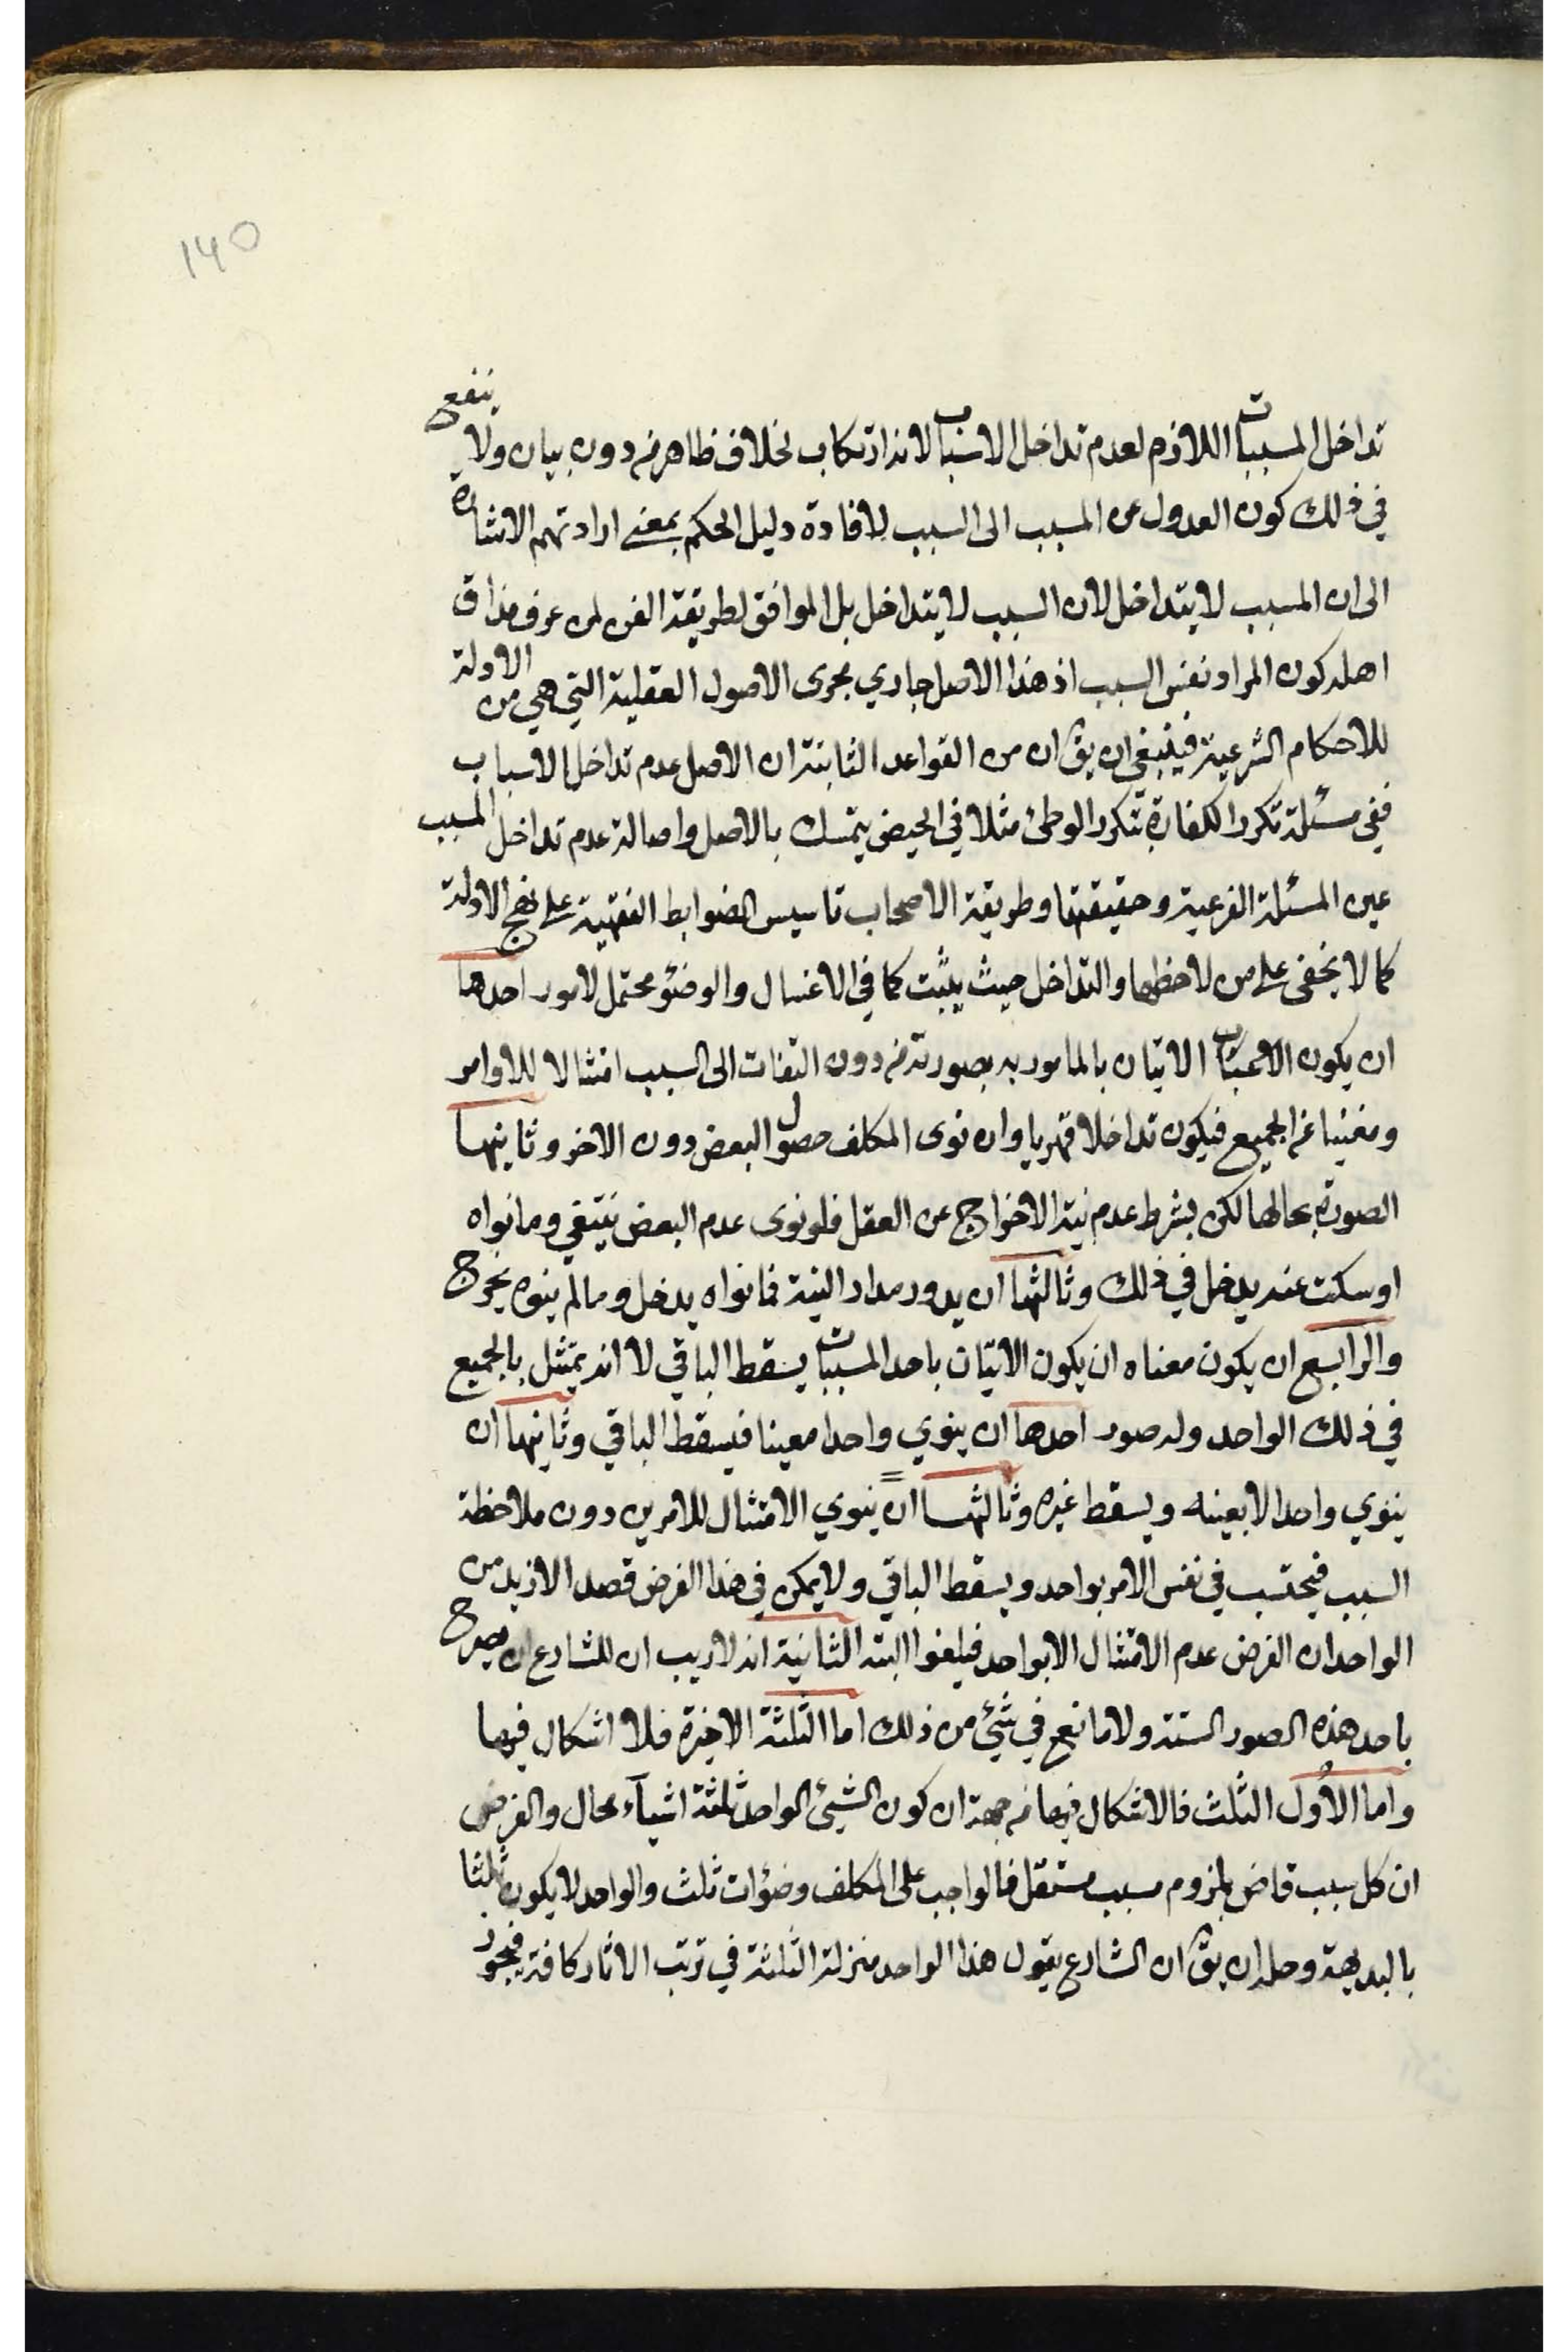 ١٧٥
تداخل المسببات اللازم لعدم تداخل الاسباب لانه ارتكاب لخلاف ظاهر من دون بيان ولا ينفع
في ذلك كون العدول عن المسبب الى السبب لافادة دليل الحكم بمعنى ارادتهم الاشارة
الى ان المسبب لا يتداخل لان السبب لا يتداخل بل الموافق لطريقة الفن لمن عرف مذاق
اهله كون المراد نفس السبب اذ هذا الاصل جاري مجرى الاصول العقلية التي هي من الادلة
للاحكام الشرعية فينبغي ان يق ان من القواعد الثابتة ان الاصل عدم تداخل الاسباب
ففي مسئلة تكرر الكفارة بتكرر الوطئ مثلا في الحيض يتمسك بالاصل واصالة عدم تداخل المسبب
عين المسئلة الفرعية وحقيقتها وطريقة الاصحاب تاسيس الضوابط الفقهية على نهج الادلة
كما لا يخفى على من لاحظها والتداخل حيث يثبت كما في الاغسال والوضوء محتمل لامور احدها
ان يكون الاتيان بالمامور به بصورته من دون التفات الى السبب امتثالا للاوامر
ومغنيا عن الجميع فيكون تداخلا قهريا وان نوى المكلف حصول البعض دون الاخر وثانيها
الصورة بحالها لكن بشرط عدم نية الاخراج عن العقل فلو نوى عدم البعض ينتفي وما نواه
او سكت عنه يدخل في ذلك وثالثها ان يدور مدار النية فما نواه يدخل وما لم ينوه يخرج
والرابع ان يكون معناه ان يكون الاتيان باحد المسببات يسقط الباقي لا انه يمتثل بالجميع
في ذلك الواحد وله صور احدها ان ينوي واحدا معينا فيسقط الباقي وثانيها ان
ينوي واحدا لا بعينه ويسقط غيره وثالثها ان ينوي الامتثال للامرين دون ملاحظة
السبب فيحتسب في نفس الامر بواحد ويسقط الباقي ولا يمكن في هذا الفرض قصد الازيد من
الواحد ان الفرض عدم الامتثال الا بواحد فيلغوا البتة الثانية انه لا ريب ان للشارع ان يصرح
باحد هذه الصور الستة ولا مانع في شئ من ذلك اما الثلثة الاخيرة فلا اشكال فيها
واما الاول الثلث فالاشكال فيها من جهة ان كون الشئ الواحد ثلثة اشيآء محال والفرض
ان كل سبب قاض بلزوم مسبب مستقل فالواجب على المكلف وضوءات ثلث والواحد لا يكون ثلثا
بالبديهة وحله ان يق ان الشارع يقول هذا الواحد منزلة الثلثة في ترتب الاثار كافة فيجوز